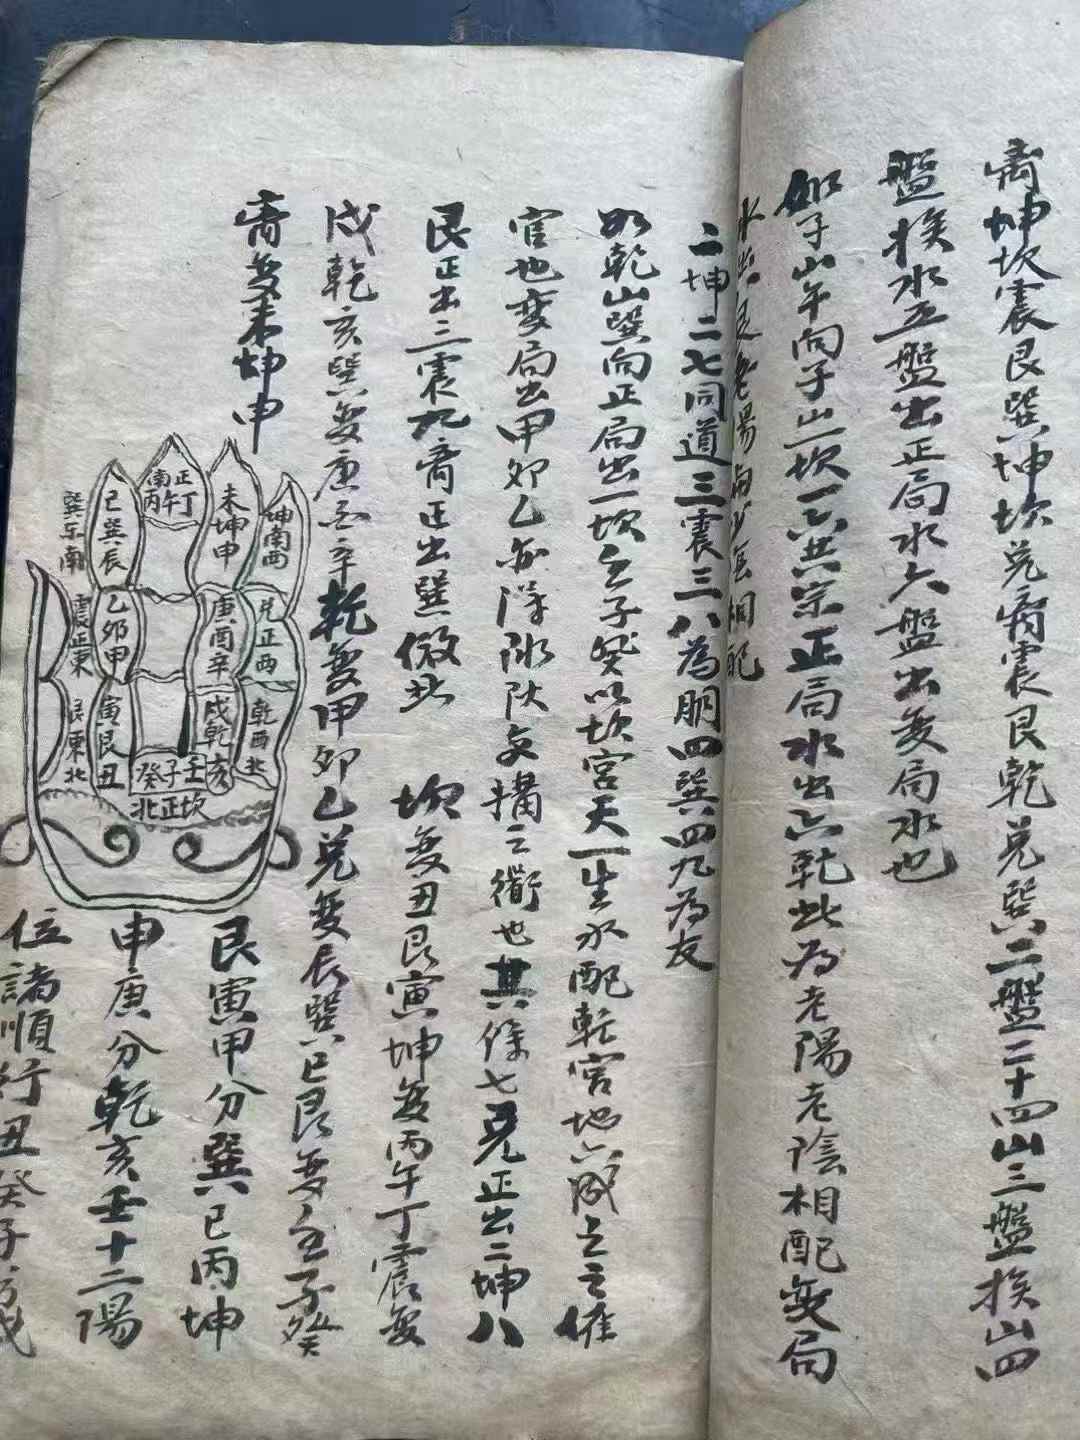 离坤坎震艮巽坤坎兑离震艮乾兑巽二盤二十四山三盤挨山四
盤挨水五盤出正局水六盤出変局水也
如子山午向子山坎一六共宗正局水出六乾此為老陽老陰相配変局
水出艮老陽
相配
二坤二七同道三震三八為朋四巽四九為友
如乾山巽向正局出一坎壬子癸以坎宫天一生水配乾宫地六成之之催
官也変局出甲卯乙亦除水文也其馀七兑正出二坤八
艮正出三震九离正出巽做此 坎変丑艮寅坤変丙午丁震変
戌乾亥巽変庚酉辛乾変甲卯乙兑変辰巽巳艮変壬子癸
离変未坤申
坤南西
未坤申
南正
丙午丁
巳巽辰
巽东南
兑正西
庚酉辛
乙卯甲
震正東
乾西北
戌乾亥
癸子壬
北正坎
寅艮丑
艮東北
艮寅甲分巽巳丙坤
申庚分乾亥壬十二陽
位諸順行丑癸子